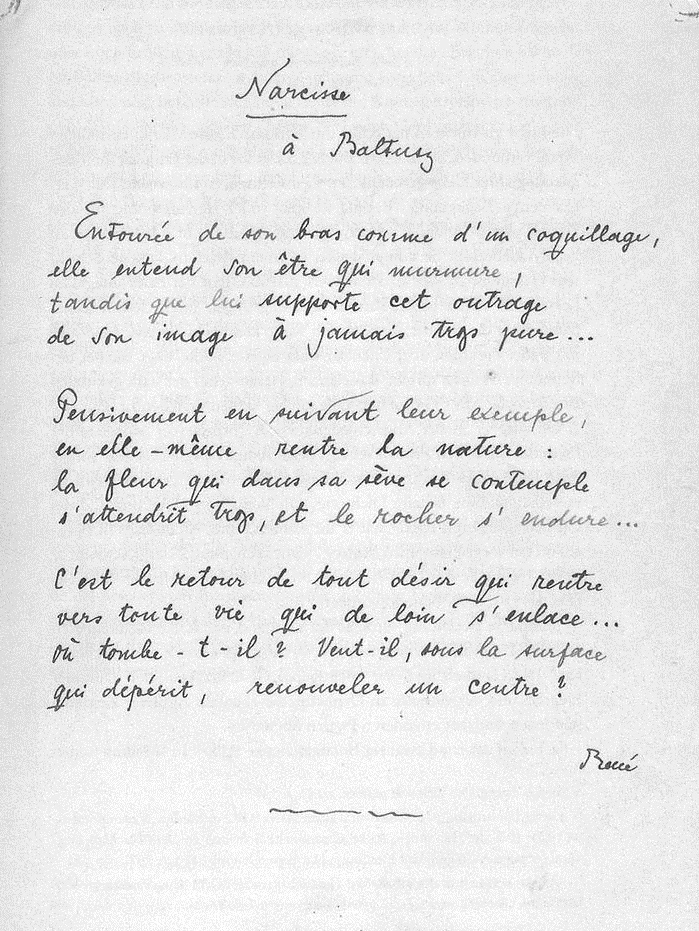 Narcisse
à Baltusz
Entourée de son bras comme d'un coquillage,
elle entend son être qui murmure,
tandis que lui supporte cet outrage
de son image à jamais trop pure...
Pensivement en suivant leur exemple,
en elle-même rentre la nature :
la fleur qui dans sa sève se contemple
s'attendrit trop, et le rocher s'endure...
C'est le retour de tout désir qui rentre
vers toute vie qui de loin s'enlace...
où tombe-t-il ? Veut-il, sous la surface
qui dépérit, renouveler un centre ?
René